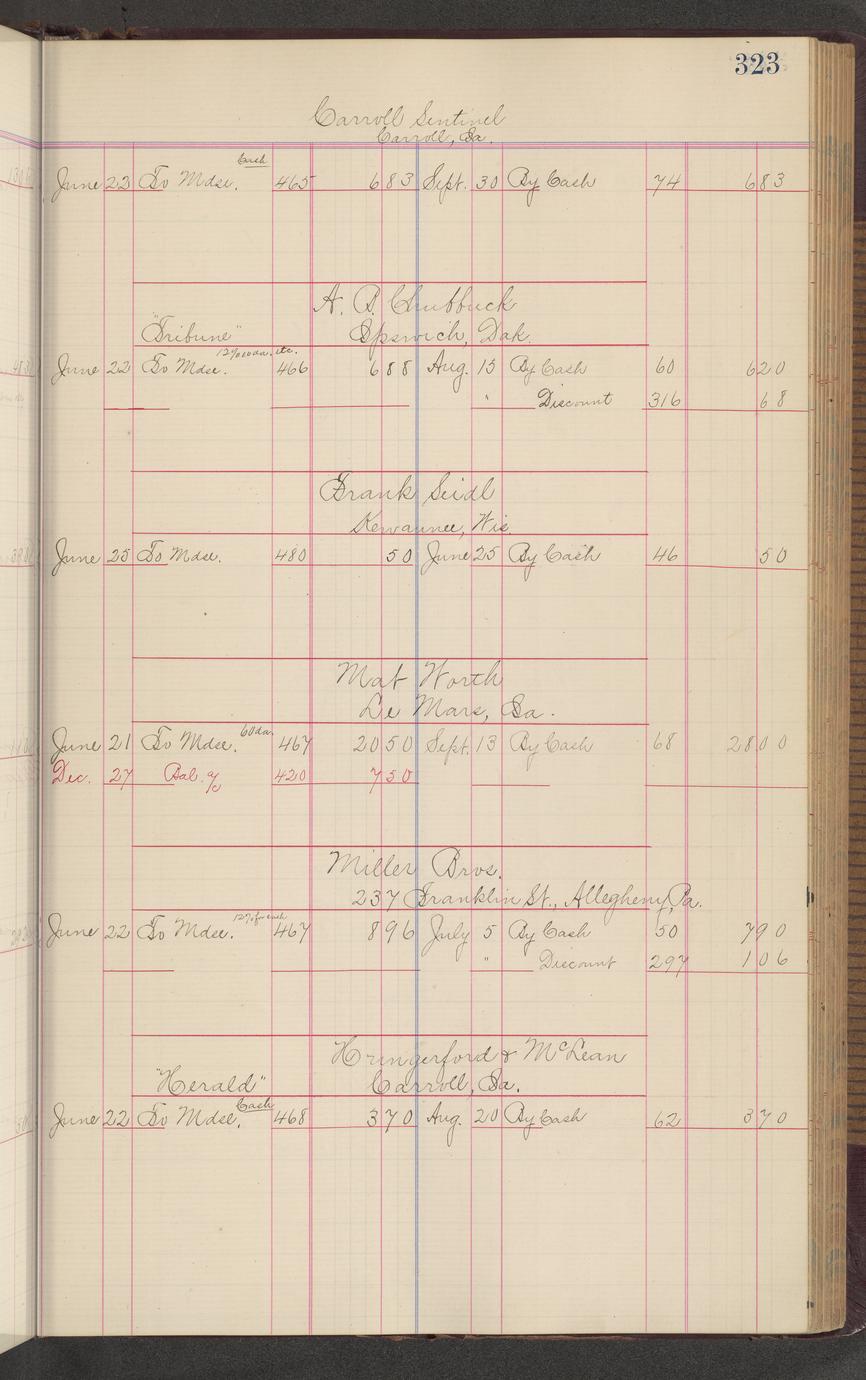 323
Carroll Sentinel
Carroll, Ia.
Cash
June 22 To Mdse. 465 683 Sept. 30 By Cash 74 683
A. B. Chubbuck
"Tribune" Ipswich, Dak.
etc.
June 22 To Mdse. 466 688 Aug. 15 By Cash 60 620
" Discount 316 68
Frank Seidl
Kewaunee, Wis.
June 25 To Mdse. 480 50 June 25 By Cash 46 50
Mat Worth
Le Mars, Ia.
60 da.
June 21 To Mdse. 467 2050 Sept. 13 By Cash 68 2800
Dec. 27 Bal. a/c 420 750
Miller Bros.
237 Franklin St., Allegheny, Pa.
12% for cash
June 22 To Mdse. 467 896 July 5 By Cash 50 790
" Discount 297 106
Hungerford & McLean
"Herald" Carroll, Ia.
Cash
June 22 To Mdse. 468 370 Aug. 20 By Cash 62 370